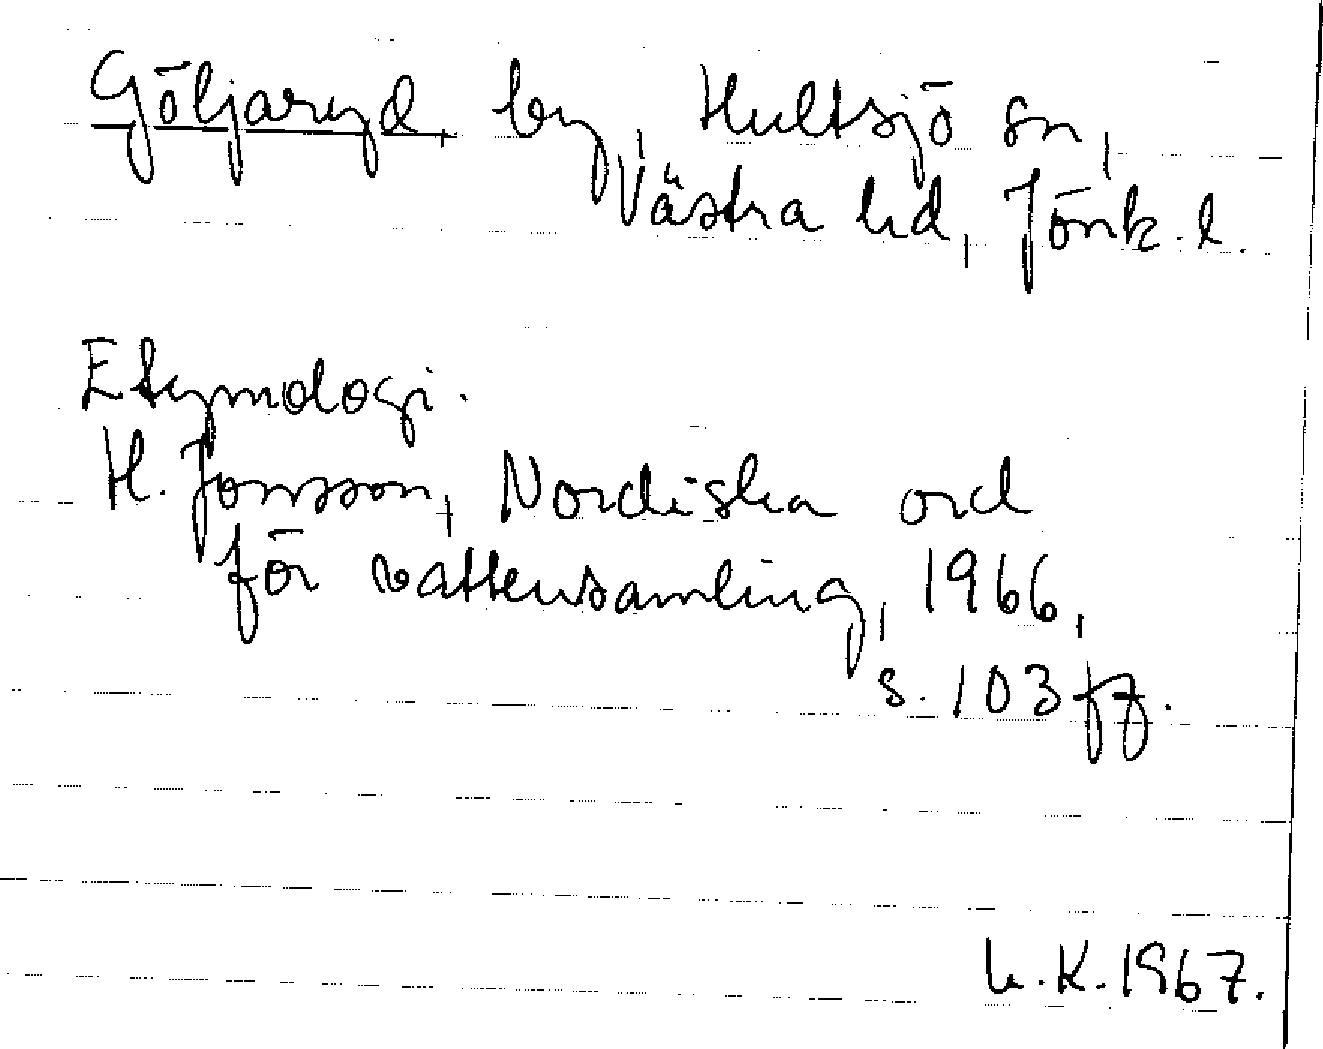 Göljaryd, by, Hultsjö sn,
Västra hd, Jönk. l.
Etymologi.
H. Jonsson, Nordiska ord
för vattensamling, 1966,
s. 103 ff.
L.K. 1967.